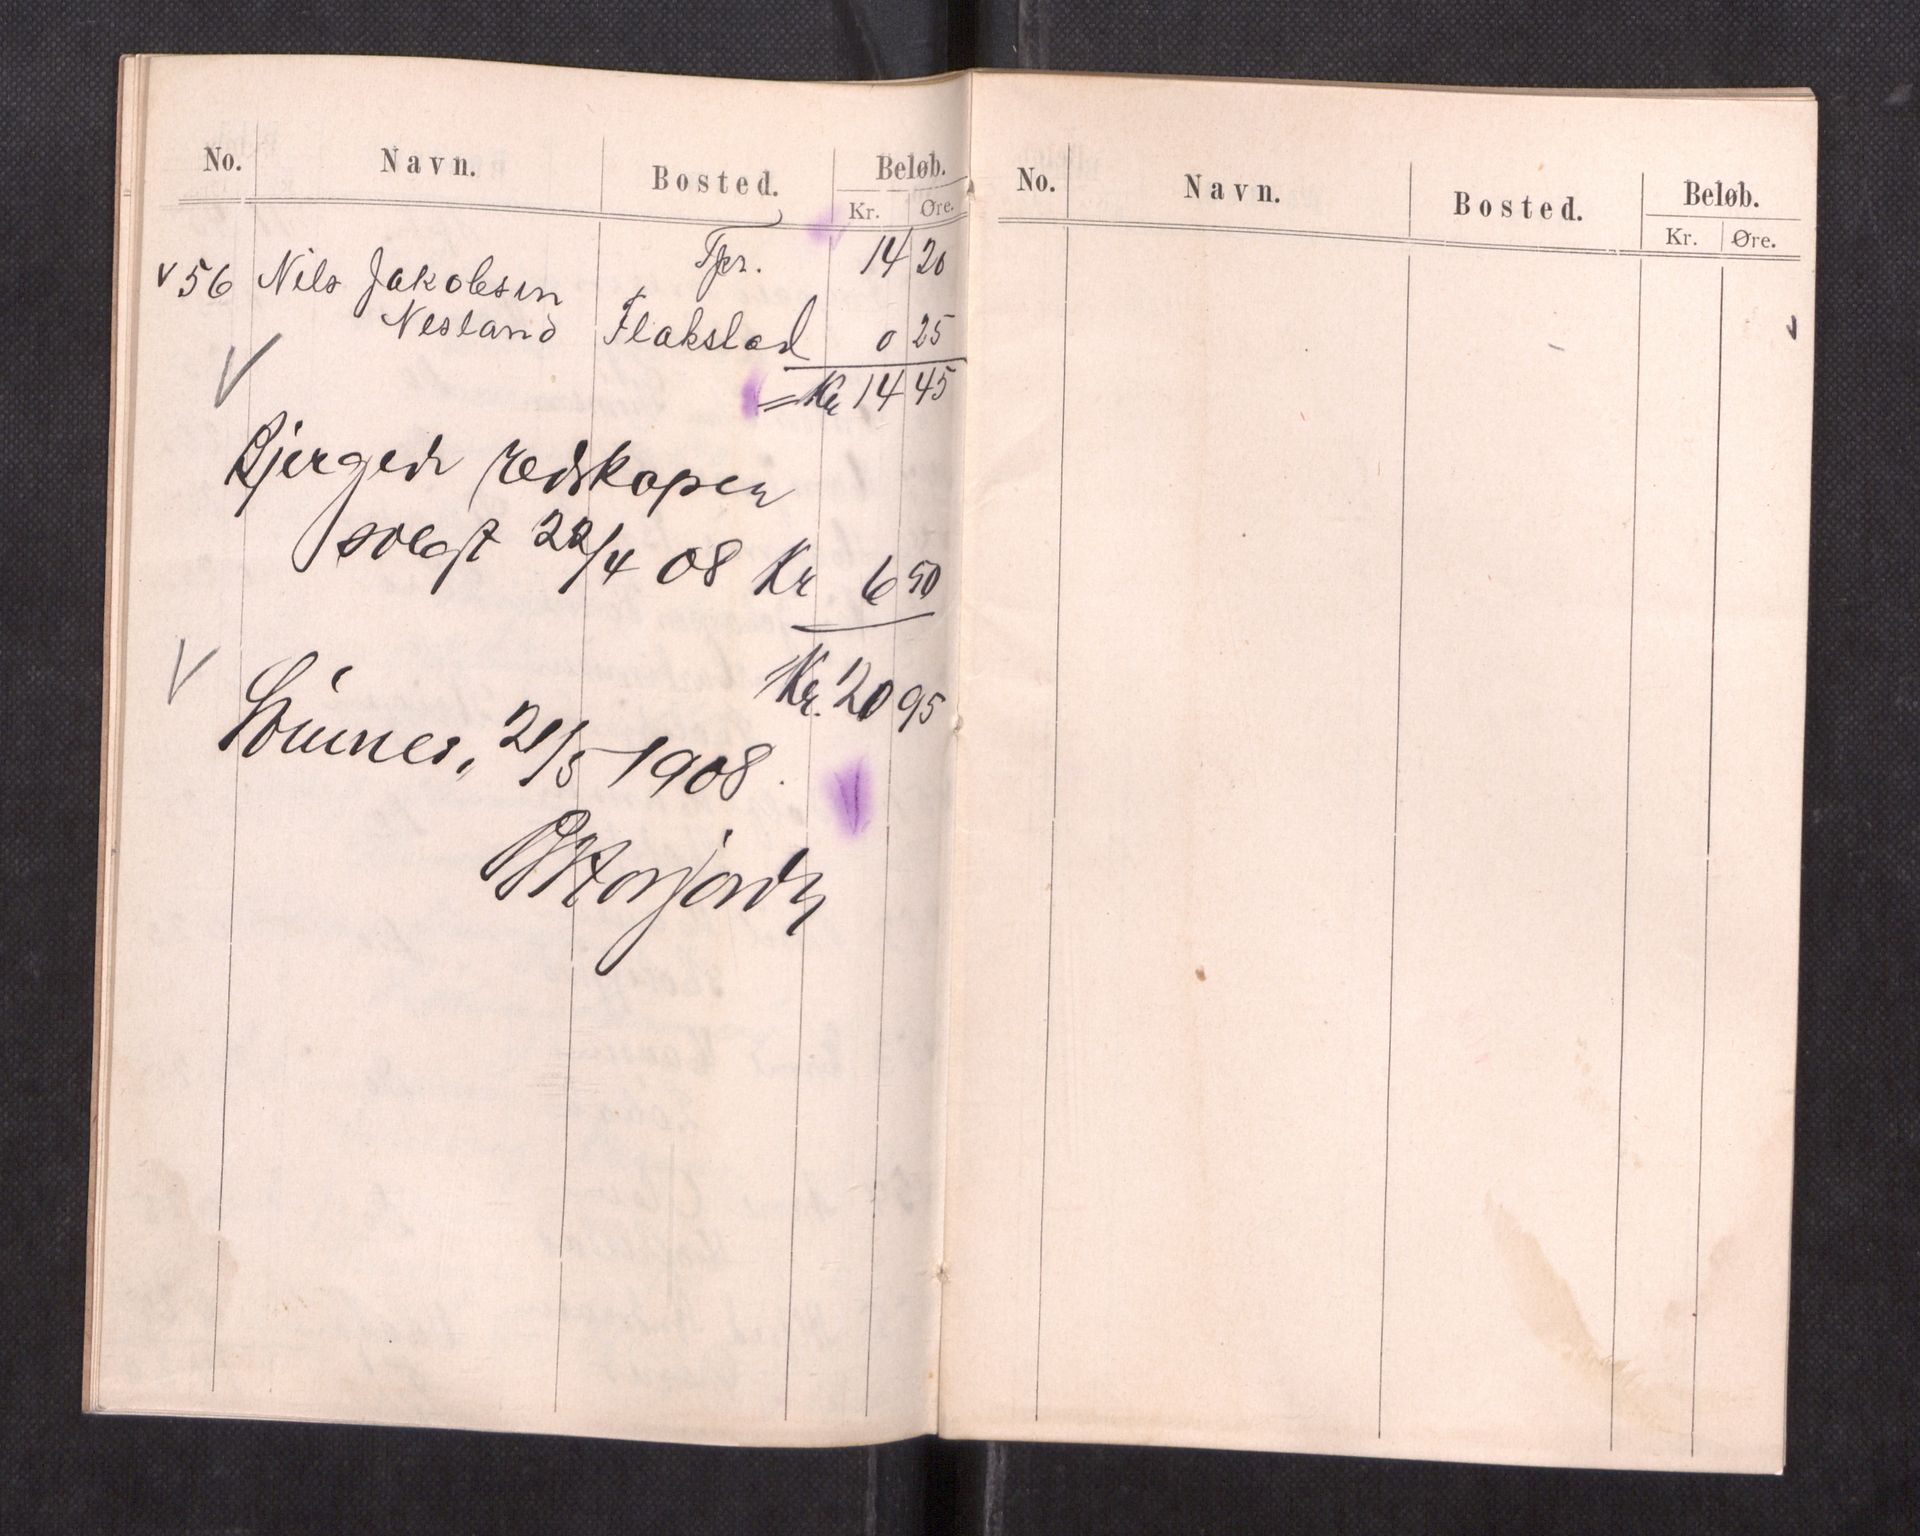 No. Navn. Bosted. Beløb.
Kr. Øre.
Tpr. 14 20
v 56 Nils Jakobsen
Nesland Flakstad 0 25
= Kr 14 45
Bjerged redskapen
solgt 22/4 08 Kr 6 50
Kr. 20 95
21/5 1908
No. Navn. Bosted. Beløb.
Kr. Øre.